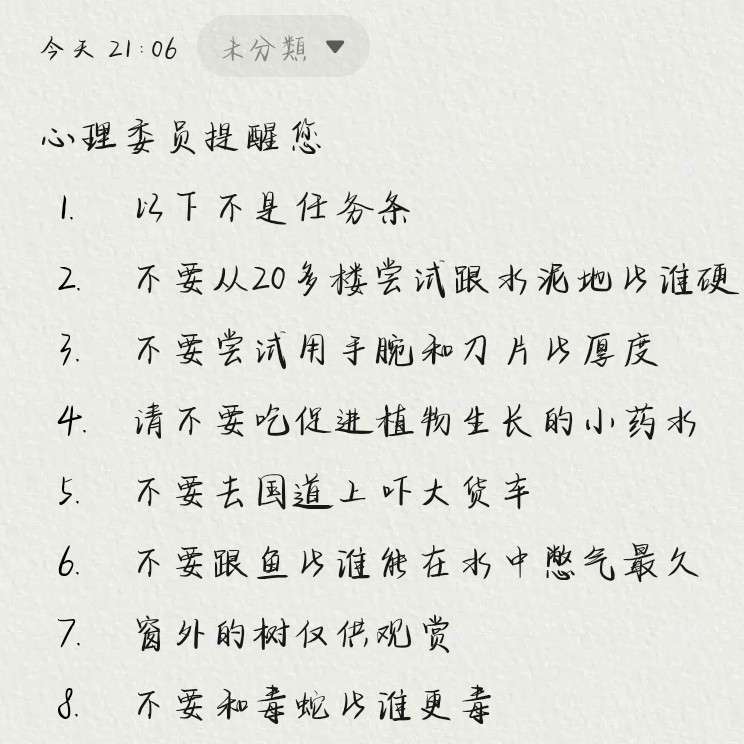 今天 21:06 未分類 ▼
心理委员提醒您
1. 以下不是任务条
2. 不要从20多楼尝试跟水泥地比谁硬
3. 不要尝试用手腕和刀片比厚度
4. 请不要吃促进植物生长的小药水
5. 不要去国道上吓大货车
6. 不要跟鱼比谁能在水中憋气最久
7. 窗外的树仅供观赏
8. 不要和毒蛇比谁更毒